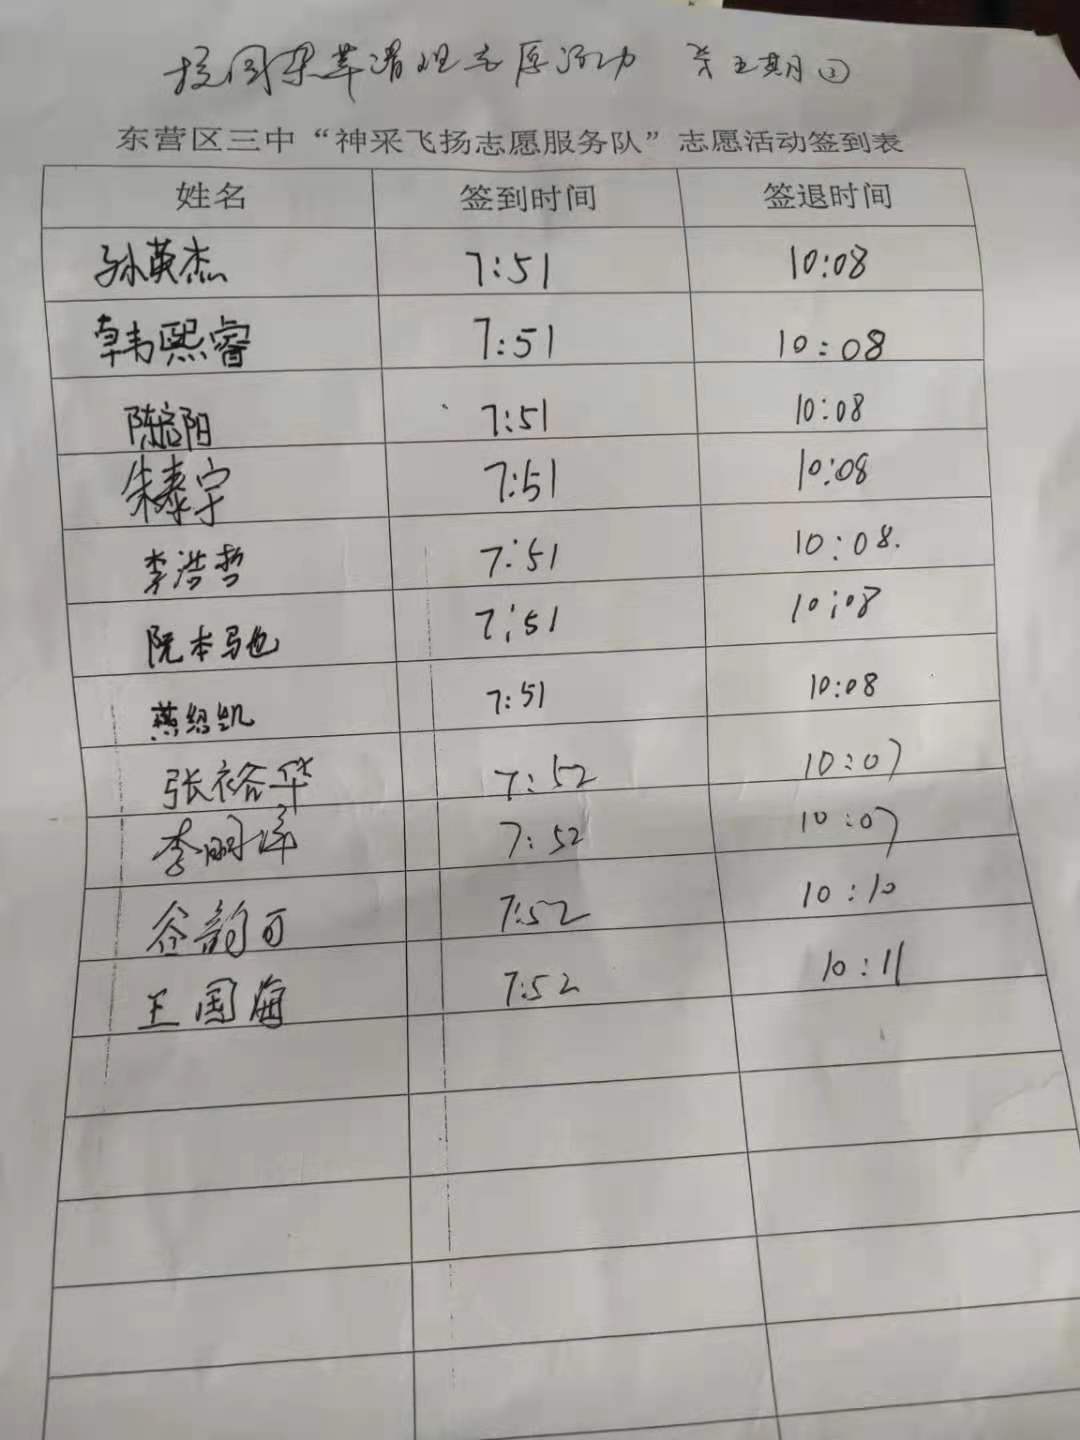 校园杂草清理志愿活动 第五期②
东营区三中“神采飞扬志愿服务队”志愿活动签到表
姓名 签到时间 签退时间
孙英杰 7:51 10:08
韩熙睿 7:51 10:08
陈启阳 7:51 10:08
朱泰宇 7:51 10:08
李浩哲 7:51 10:08.
阮本驰 7:51 10:08
燕绍凯 7:51 10:08
张裕华 7:52 10:07
李明泽 7:52 10:07
谷韵可 7:52 10:10
王国海 7:52 10:11